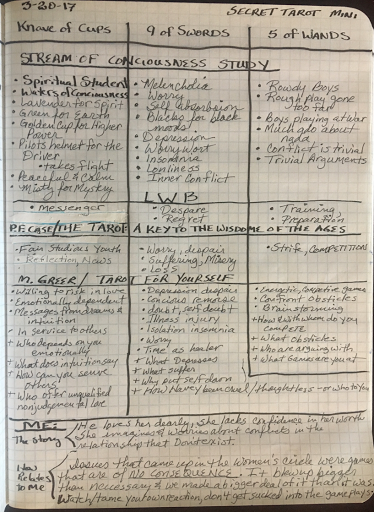 3-20-17
SECRET TAROT MINI
Knave of Cups
9 of Swords
5 of Wands
STREAM OF CONCIOUSNESS STUDY
• Spiritual Student
• Waters of Conciousness
• Lavender for Spirit
• Green for Earth
• Golden Cup for Higher
Power
• Pilots helmet for the
Driver
• takes flight
• Peaceful & Calm
• Misty for Mystery
• Melencholia
• Worry
• Self absorbsion
• Blacks for black
moods!
• Depression
• Worry wort
• Insomnia
• Lonliness
• Inner Conflict
• Rowdy Boys
• Rough play gone
too far
• Boys playing at war
• Much ado about
nada
• Conflict is trivial
• Trivial Arguments
LWB
• Messenger
• Despare
• Regret
• Training,
• Preparation
P.F. CASE/THE TAROT A KEY TO THE WISDOM OF THE AGES
• Fair Studious Youth
• Reflection, News
• Worry, despair
• Suffering, Misery
• Loss
• Strife, COMPETITION
M. GREER / TAROT FOR YOURSELF
• Willing to risk in love
• Emotionally dependent
• Messages from dreams &
intuition
• In service to others
+ Who depends on you
emotionally
+ What does intuition say
+ How can you serve
others
+ Who offer unqualified
nonjudgemental love
• Depression despair
• Concious remorse
• doubt, self doubt
• Illness injury
• Isolation insomnia
• Worry
• Time as healer
+ What Depresses
+ What suffer
+ Why put self down
+ How Have you been cruel / thoughtless - or who to you
• Energetic, competive games
• Confront obsticles
• Brainstorming
+ How & with whom do you
compete
+ What obsticles
+ Who are arguing with
+ What Games are you at
ME:
The Story
He loves her dearly, she lacks confidence in her worth
She imagines & worries about conflicts in the
relationship that Dont exist.
How
Relates
to Me
Issues that came up in the Women's circle were games
that are of NO CONSEQUENCE. It blew up bigger
than neccessary & we made a bigger deal of it than it was.
Watch/tame your own reaction, don't get sucked into the game plays